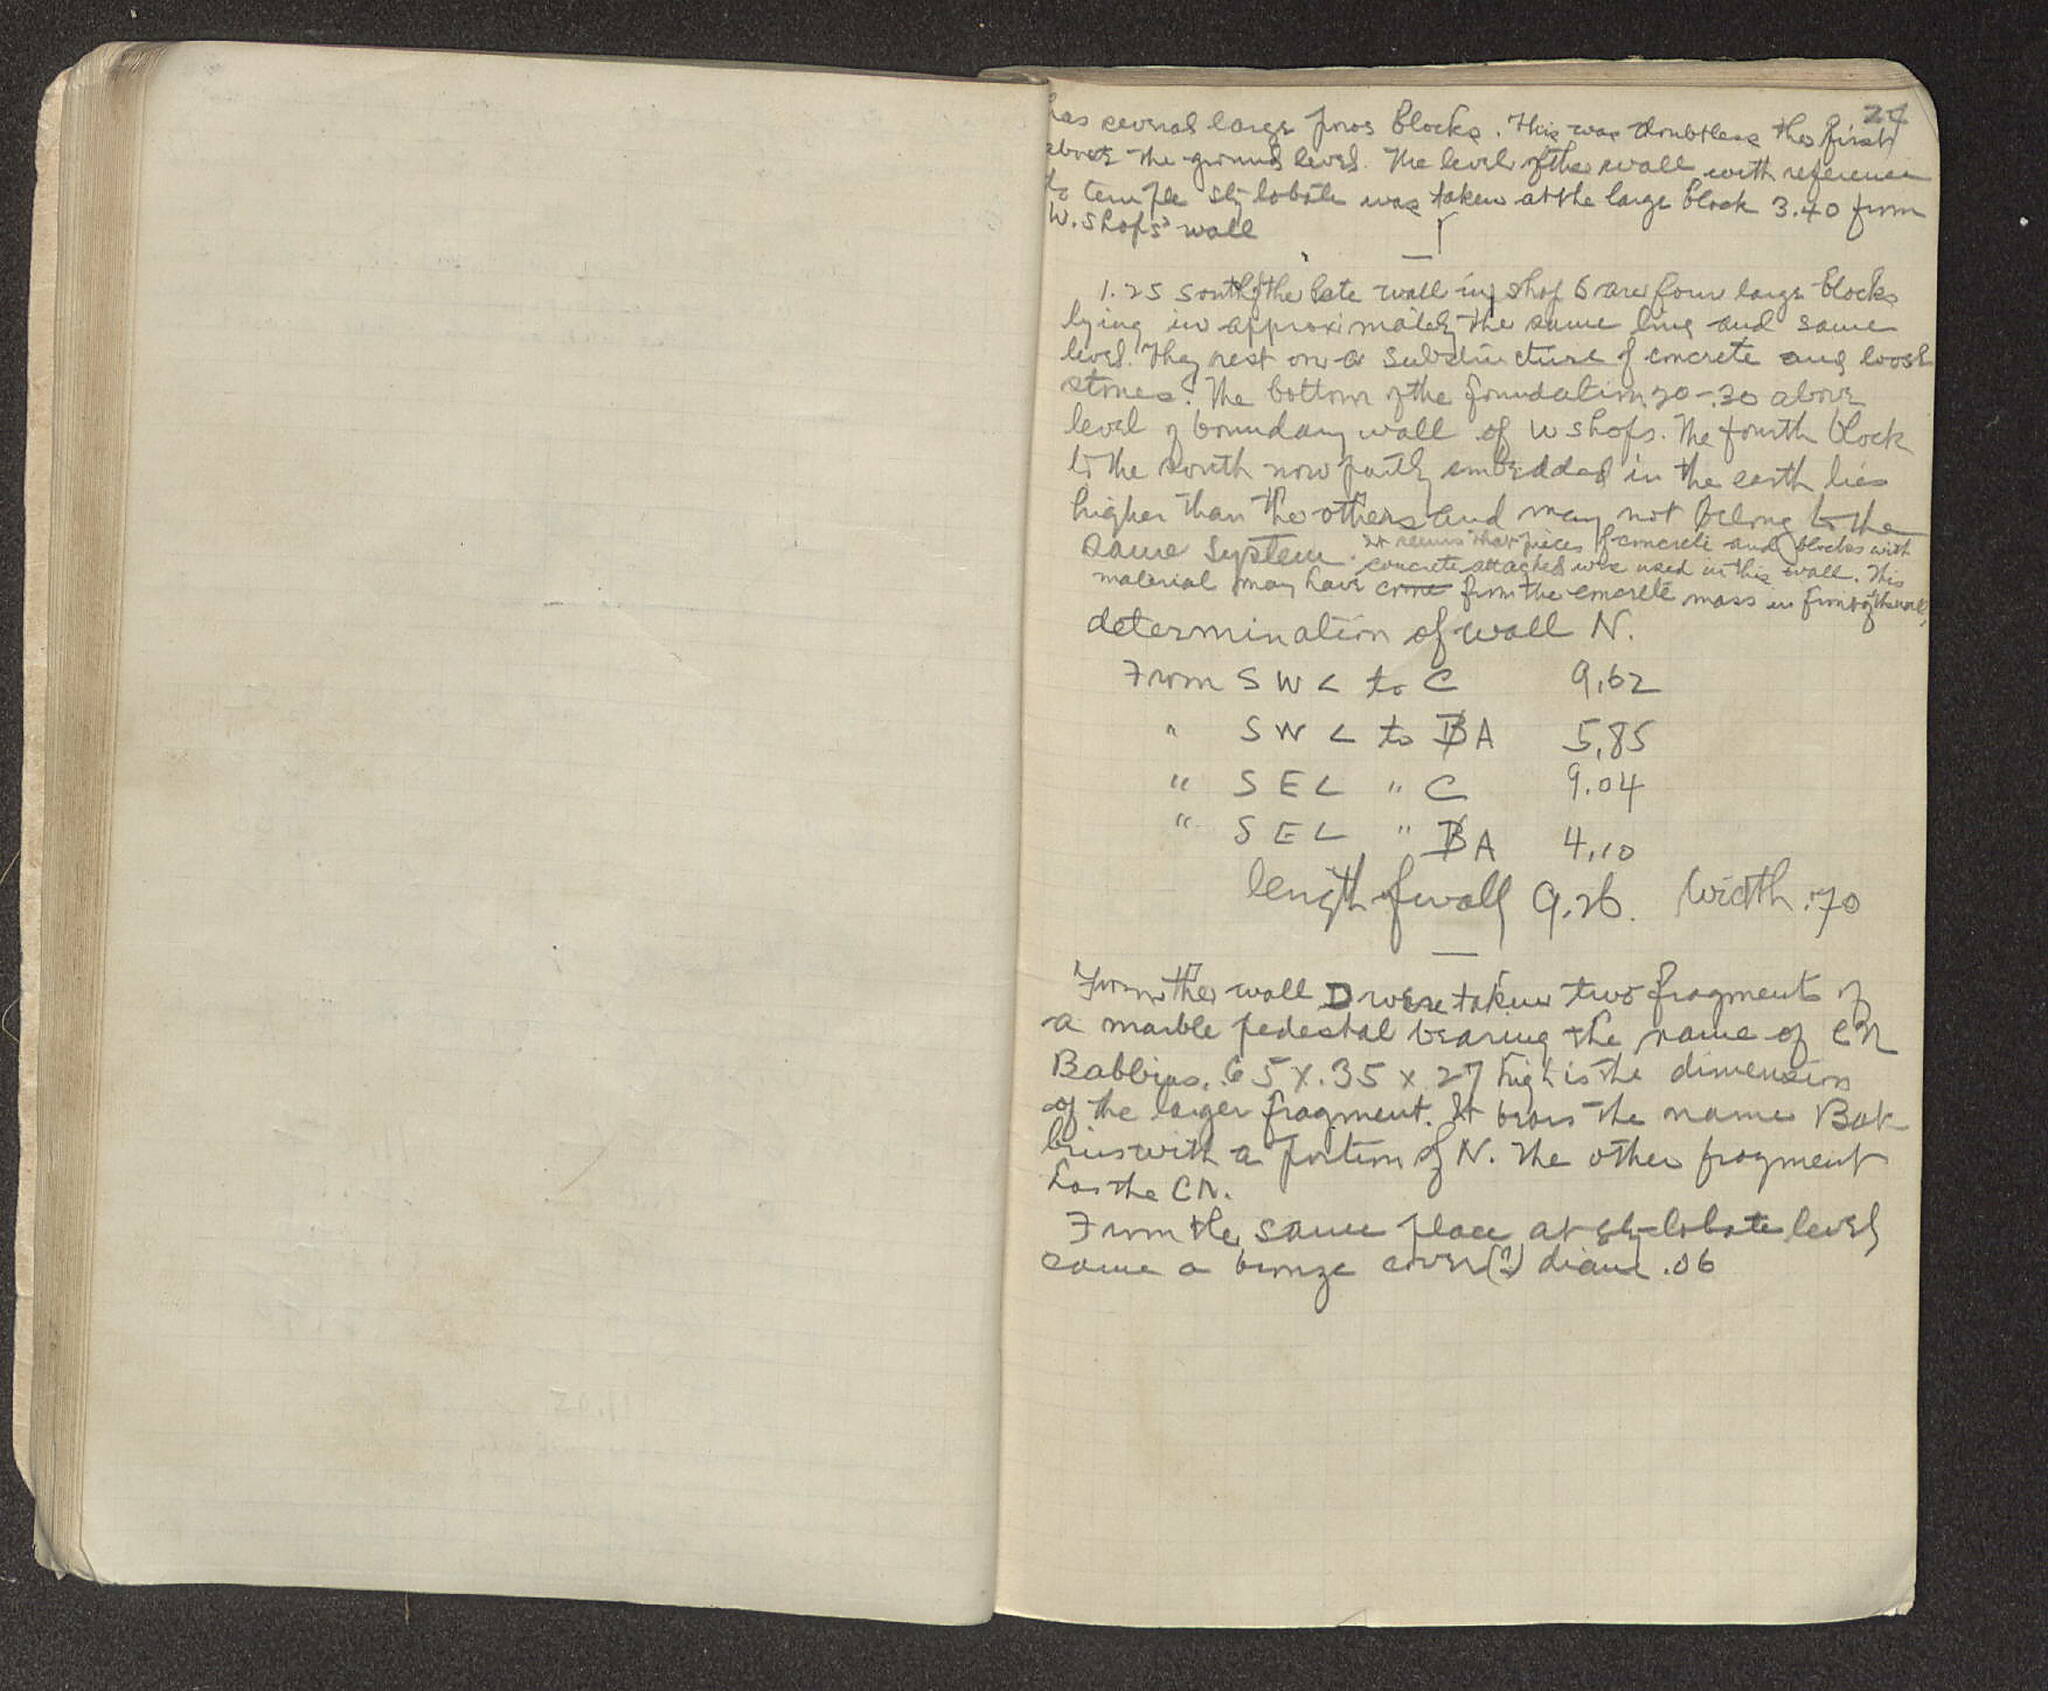 24
has several large poros blocks. This was doubtless the first
above the ground level. The level of the wall with reference
to temple stylobate was taken at the large block 3.40 from
W. Shops' wall
1.25 south of the late wall in shop 6 are four large blocks
lying in approximately the same line and same
level. They rest on a substructure of concrete and loose
stones. The bottom of the foundation .20-.30 above
level of boundary wall of W Shops. The fourth block
to the south now partly embedded in the earth lies
higher than the others and may not belong to the
same system. It seems that pieces of concrete and blocks with
concrete attached were used in this wall. This
material may have come from the concrete mass in front of the wall
determination of wall N.
From S W L to C 9.62
" S W L to B A 5.85
" S E L " C 9.04
" S E L " B A 4.10
length of wall 9.26. Width .70
From the wall D were taken two fragments of
a marble pedestal bearing the name of CN
Babbius. .65 x .35 x .27 high is the dimension
of the larger fragment. It bears the name Bab
bius with a portion of N. The other fragment
has the CN.
From the same place at stylobate level
came a bronze cover(?) diam .06